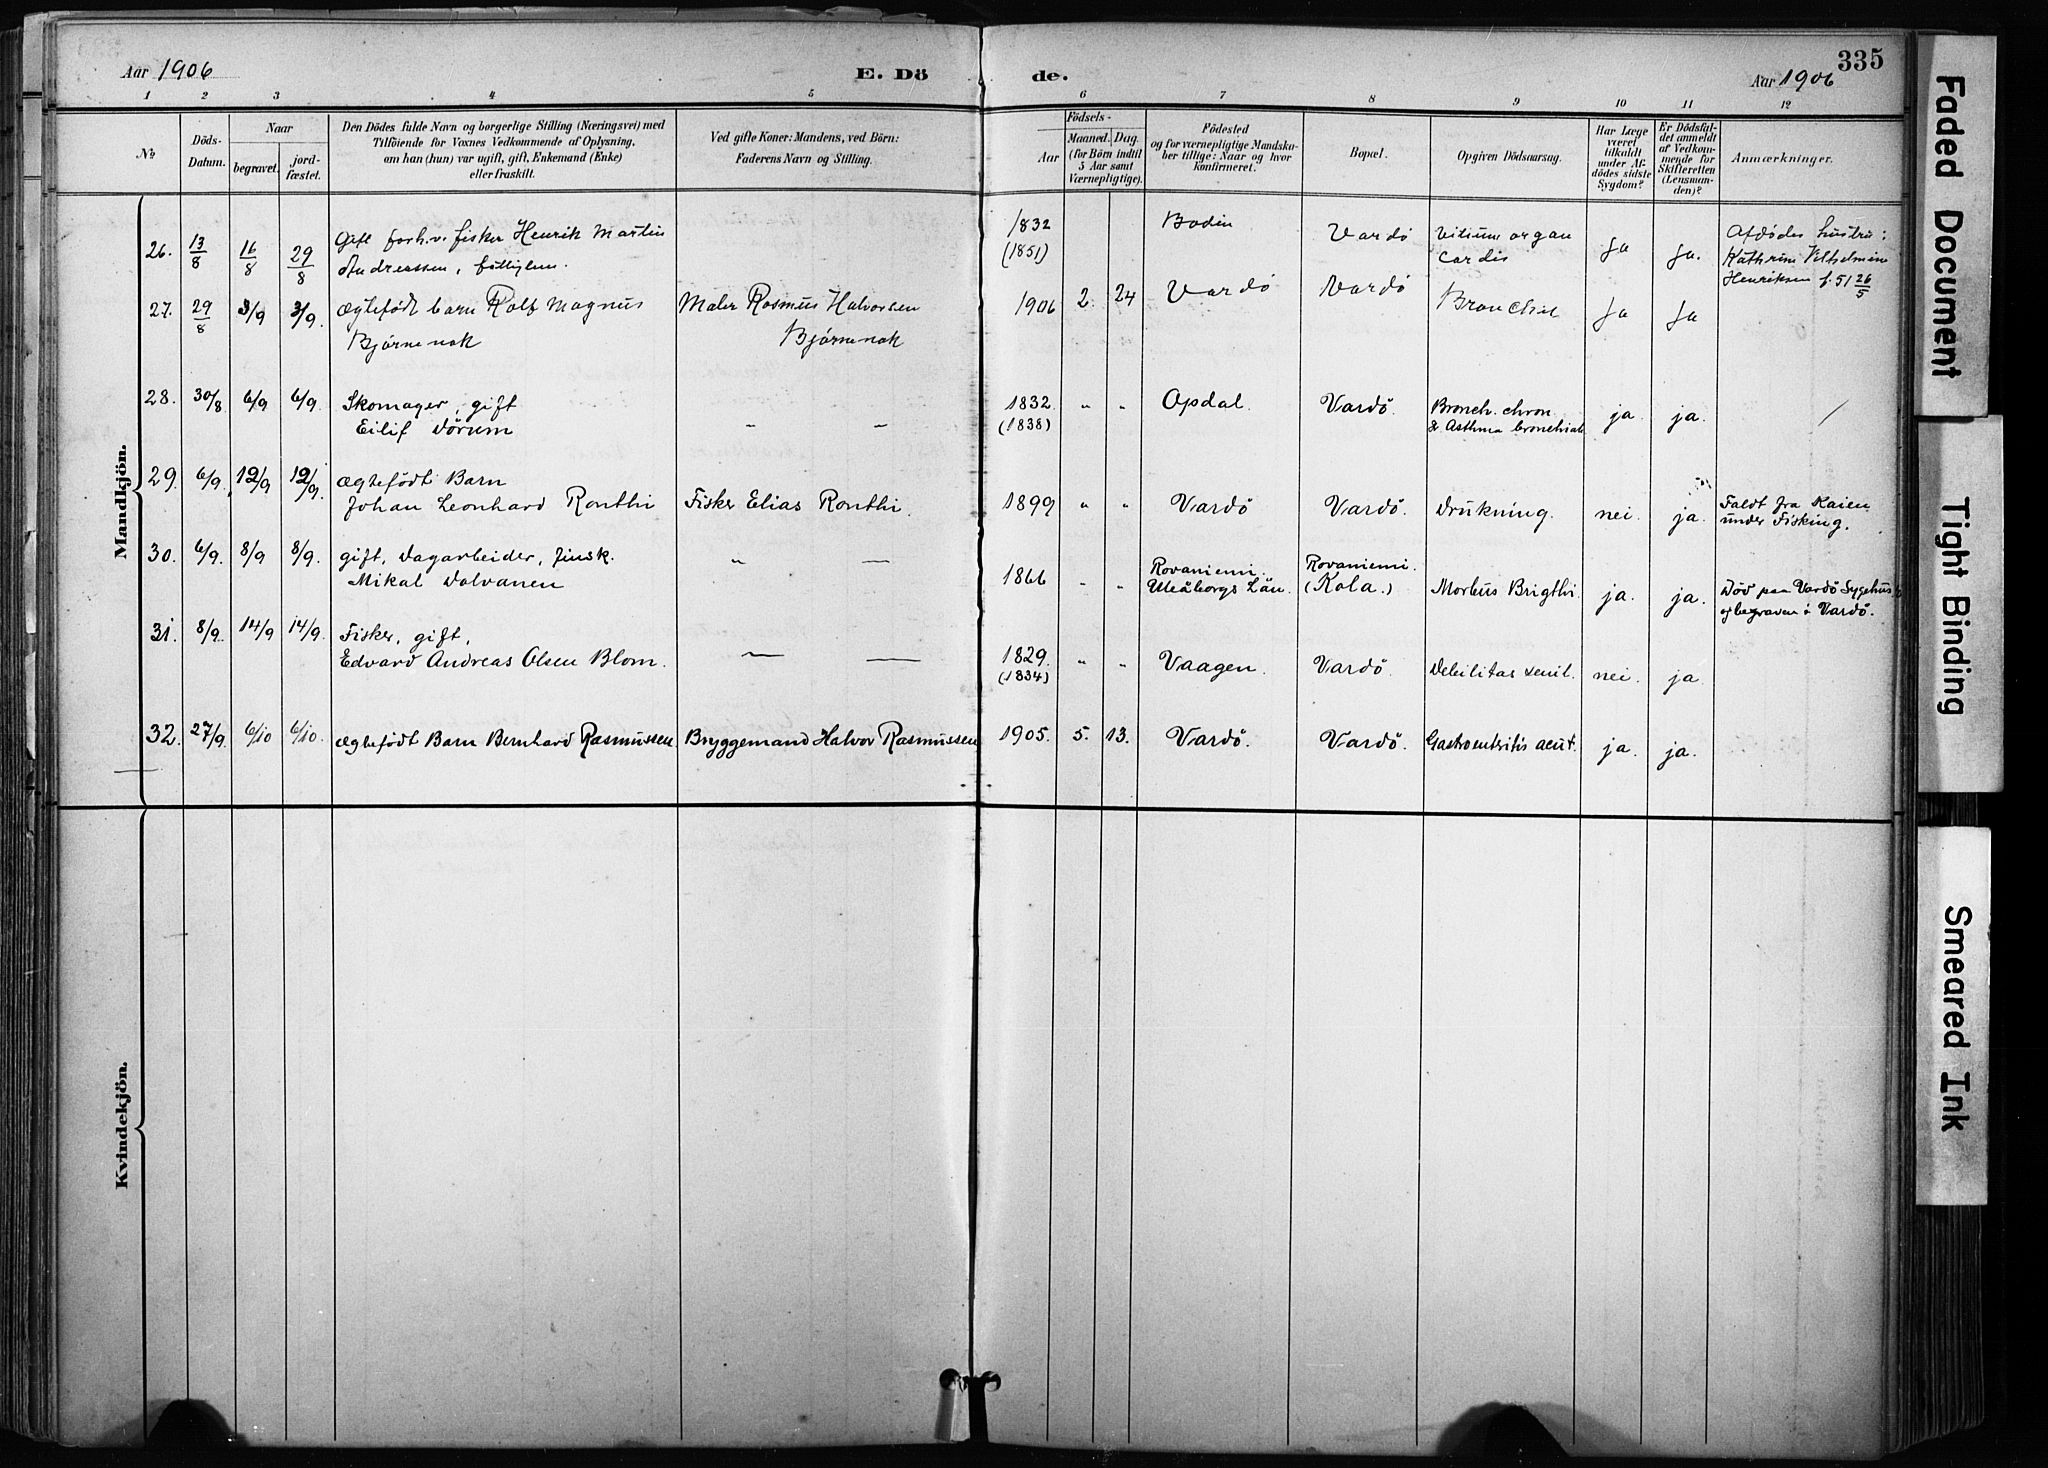 335
Aar 1906
E. Dö
de.
Aar 1906
1 2 3 4 5 6 7 8 9 10 11 12
No
Döds-Datum.
Naar
begravet.
jord-fæstet.
Den Dödes fulde Navn og borgerlige Stilling (Næringsvei) med
Tilföiende for Voxnes Vedkommende af Oplysning,
om han (hun) var ugift, gift, Enkemand (Enke)
eller fraskilt.
Ved gifte Koner: Mandens, ved Börn:
Faderens Navn og Stilling.
Födsels-
Aar
Maaned. Dag.
(for Börn indtil
5 Aar samt
Værnepligtige).
Födested
og for værnepligtige Mandska-
ber tillige: Naar og hvor
konfirmeret.
Bopæl.
Opgiven Dödsaarsag.
Har Læge
været
tilkaldt
under Af-
dödes sidste
Sygdom?
Er Dödsfal-
det anmeldt
af Vedkom-
mende for
Skifteretten
(Lensman-
den)?
Anmærkninger.
Mandkjön.
26. 13/8 16/8 29/8 Gift forh.v. fisker Henrik Martin
Andreassen,
1832
(1851)
Bodin Vardö Vitium organ
cordis
Ja Ja.
Afdödes hustru:
Kathrine Vilhelmine
Henriksen f. 51 26/5
27. 29/8 3/9 3/9. Ægtefödt barn Rolf Magnus
Bjørnenak
Maler Rasmus Halvorsen
Bjørnenak
1906 2. 24 Vardö Vardö Bronchit Ja Ja
28. 30/8 6/9 6/9. Skomager, gift
Eilif Dörum
" "
1832.
(1838)
" " Opdal. Vardö. Bronch. chron.
& Asthma bronchiale
ja ja.
29. 6/9. 12/9 12/9. Ægtefödt Barn
Johan Leonhard Ronthi
Fisker Elias Ronthi.
1899 " " Vardö Vardö. Drukning. nei. ja.
Faldt fra Kaien
under Fisking.
30. 6/9. 8/9 8/9. gift, Dagarbeider, finsk.
Mikal Dolvanen
" —
1866 " "
Rovaniemi.
Uleåborgs Län.
Rovaniemi.
(Kola.)
Morbus Brigthi. ja. ja.
Död paa Vardö Sygehus
og begraven i Vardö.
31. 8/9. 14/9 14/9. Fisker, gift,
Edvard Andreas Olsen Blom.
— —
1829.
(1834)
" " Vaagen. Vardö. Debilitas senil. nei. ja
32. 27/9. 6/10 6/10. Ægtefödt Barn Bernhard Rasmussen
Bryggemand Halvor Rasmussen
1905. 5. 13. Vardö. Vardö. Gastroenteritis acut. ja. ja.
Kvindekjön.
Faded Document
Tight Binding
Smeared Ink